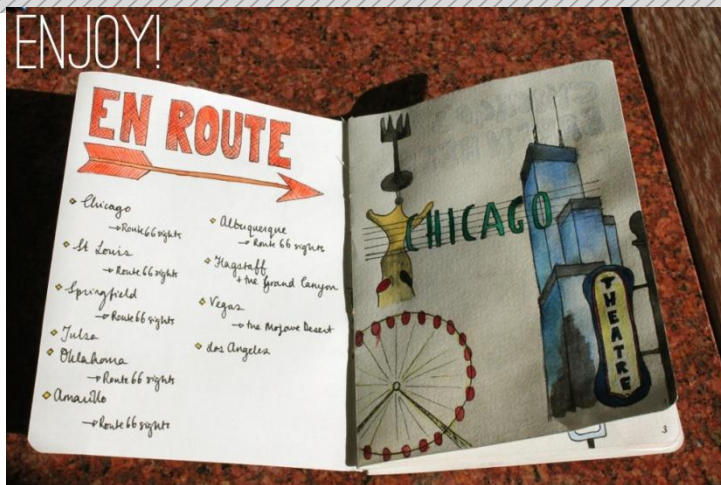 ENJOY!
EN ROUTE
Chicago
→ Route 66 sights
St Louis
→ Route 66 sights
Springfield
→ Route 66 sights
Tulsa
Oklahoma
→ Route 66 sights
Amarillo
→ Route 66 sights
Albuquerque
→ Route 66 sights
Flagstaff
+ the Grand Canyon
Vegas
→ the Mojave Desert
Los Angeles
CHICAGO
THEATRE
3